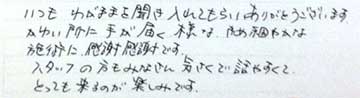 いつも わがままを聞き入れてもらいありがとうございます。
かゆい所に手が届く様な、きめ細やかな
施術に、感謝感謝です。
スタッフの方もみなさん 気さくで話やすくて、
とっても来るのが楽しみです。